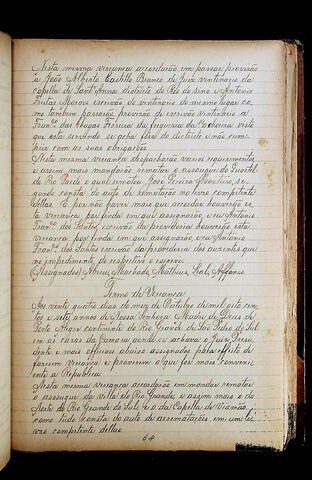 Nesta mesma vereança accordarão em passar provisão
a João Alberto Castilho Branco de Juiz ventenario da
capella de Sant'Anna districto do Rio do Sino e Antonio
Freitas Moraes escrivão do ventenario do mesmo lugar co-
mo tambem passarão provisão de escrivão ventenario a
Fran.co das Chagas Ferreira da freguezia da Cachoeira visto
que esta servindo se acha fora do districto e não cum-
prir com as suas obrigações.
Nesta mesma vereança despacharão varios requerimentos
e assim mais mandarão rematar o assougue do Quartel
do Rio Pardo o qual rematou José Pereira se-
gundo consta do auto de rematação no livro competente
dellas. E por não haver mais que accordar houverão es-
ta vereança por finda em que assignarão, e eu Antonio
Fran.co dos Santos escrivão da provedoria houverão esta
vereança por finda em que assignarão, e eu Antonio
Fran.co dos Santos escrivão da provedoria dos auzentes que
no impedimento do respectivo o escrevi.
(Assignados) Abreu, Machado, Mathias, Leal, Affonso.
Termo de Vereança
Aos vinte quatro dias do mez de Outubro de mil oito cen-
tos e sete annos de Nossa Senhora Madre de Deus de
Porto Alegre continente do Rio Grande de São Pedro do Sul
em as casas da Camara aonde se achava o Juiz Presi-
dente e mais officiaes abaixo assignados para effeito de
fazerem vereança e proverem o que fos mais conveni-
ente a Republica.
Nesta mesma vereança accordarão em mandar rematar
o assougue da villa do Rio Grande, e assim mais o do
Norte do Rio Grande do Sul, e o da Capella de Viamão
como tudo consta do auto de arrematações em seu li-
vro competente dellas.
64